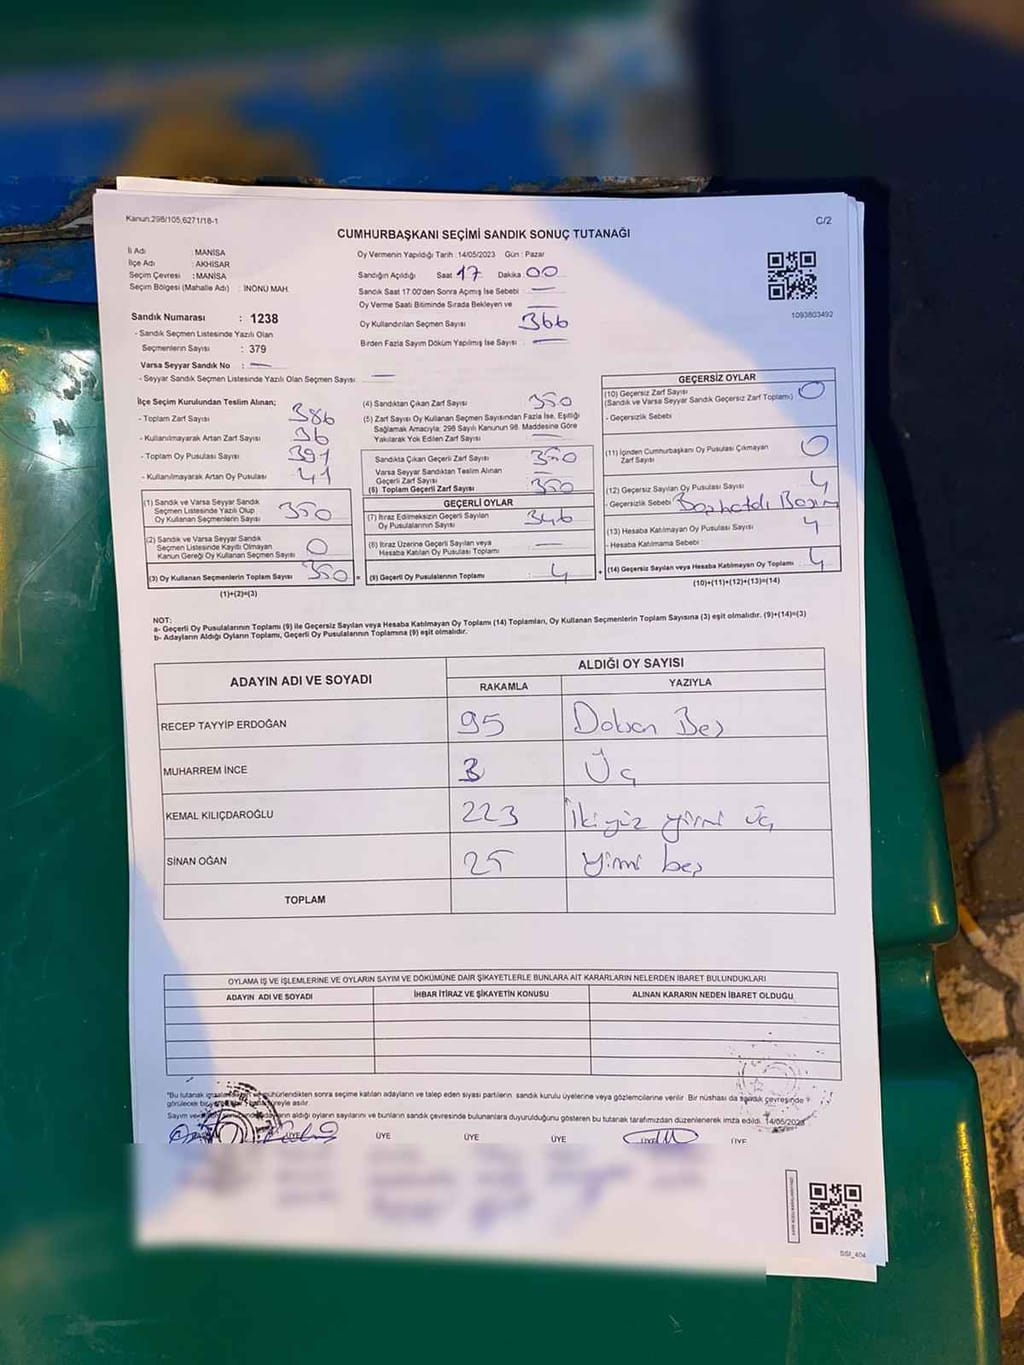 Kanun:298/105,6271/18-1
C/2
CUMHURBAŞKANI SEÇİMİ SANDIK SONUÇ TUTANAĞI
İl Adı : MANİSA
İlçe Adı : AKHİSAR
Seçim Çevresi : MANİSA
Seçim Bölgesi (Mahalle Adı) : İNÖNÜ MAH.
Sandık Numarası : 1238
- Sandık Seçmen Listesinde Yazılı Olan
Seçmenlerin Sayısı : 379
Varsa Seyyar Sandık No : —
- Seyyar Sandık Seçmen Listesinde Yazılı Olan Seçmen Sayısı : —
Oy Vermenin Yapıldığı Tarih : 14/05/2023 Gün : Pazar
Sandığın Açıldığı Saat 17 Dakika 00
Sandık Saat 17.00'den Sonra Açımış İse Sebebi : —
Oy Verme Saati Bitiminde Sırada Bekleyen ve —
Oy Kullandırılan Seçmen Sayısı : 366
Birden Fazla Sayım Döküm Yapılmış İse Sayısı : —
1093803492
İlçe Seçim Kurulundan Teslim Alınan;
- Toplam Zarf Sayısı : 386
- Kullanılmayarak Artan Zarf Sayısı : 36
- Toplam Oy Pusulası Sayısı : 391
- Kullanılmayarak Artan Oy Pusulası : 41
(1) Sandık ve Varsa Seyyar Sandık
Seçmen Listesinde Yazılı Olup
Oy Kullanan Seçmenlerin Sayısı : 350
(2) Sandık ve Varsa Seyyar Sandık
Seçmen Listesinde Kayıtlı Olmayan
Kanun Gereği Oy Kullanan Seçmen Sayısı : 0
(3) Oy Kullanan Seçmenlerin Toplam Sayısı : 350
(1)+(2)=(3)
(4) Sandıktan Çıkan Zarf Sayısı : 350
(5) Zarf Sayısı Oy Kullanan Seçmen Sayısından Fazla İse, Eşitliği
Sağlamak Amacıyla; 298 Sayılı Kanunun 98. Maddesine Göre
Yakılarak Yok Edilen Zarf Sayısı : —
Sandıkta Çıkan Geçerli Zarf Sayısı : 350
Varsa Seyyar Sandıktan Teslim Alınan
Geçerli Zarf Sayısı : —
(6) Toplam Geçerli Zarf Sayısı : 350
GEÇERLİ OYLAR
(7) İtiraz Edilmeksizin Geçerli Sayılan
Oy Pusulalarının Sayısı : 346
(8) İtiraz Üzerine Geçerli Sayılan veya
Hesaba Katılan Oy Pusulası Toplamı : —
= (9) Geçerli Oy Pusulalarının Toplamı : 4 +
GEÇERSİZ OYLAR
(10) Geçersiz Zarf Sayısı
(Sandık ve Varsa Seyyar Sandık Geçersiz Zarf Toplamı) : 0
- Geçersizlik Sebebi :
(11) İçinden Cumhurbaşkanı Oy Pusulası Çıkmayan
Zarf Sayısı : 0
(12) Geçersiz Sayılan Oy Pusulası Sayısı : 4
- Geçersizlik Sebebi :
(13) Hesaba Katılmayan Oy Pusulası Sayısı : 4
- Hesaba Katılmama Sebebi :
(14) Geçersiz Sayılan veya Hesaba Katılmayan Oy Toplamı : 4
(10)+(11)+(12)+(13)=(14)
NOT:
a- Geçerli Oy Pusulalarının Toplamı (9) ile Geçersiz Sayılan veya Hesaba Katılmayan Oy Toplamı (14) Toplamları, Oy Kullanan Seçmenlerin Toplam Sayısına (3) eşit olmalıdır. (9)+(14)=(3)
b- Adayların Aldığı Oyların Toplamı, Geçerli Oy Pusulalarının Toplamına (9) eşit olmalıdır.
ADAYIN ADI VE SOYADI
ALDIĞI OY SAYISI
RAKAMLA YAZIYLA
RECEP TAYYİP ERDOĞAN 95 Doksan Beş
MUHARREM İNCE 3 Üç
KEMAL KILIÇDAROĞLU 223 İkiyüz yirmi üç
SİNAN OĞAN 25 yirmi beş
TOPLAM
OYLAMA İŞ VE İŞLEMLERİNE VE OYLARIN SAYIM VE DÖKÜMÜNE DAİR ŞİKAYETLERLE BUNLARA AİT KARARLARIN NELERDEN İBARET BULUNDUKLARI
ADAYIN ADI VE SOYADI İHBAR İTİRAZ VE ŞİKAYETİN KONUSU ALINAN KARARIN NEDEN İBARET OLDUĞU
"Bu tutanak mühürlendikten sonra seçime katılan adayların ve talep eden siyasi partilerin sandık kurulu üyelerine veya gözlemcilerine verilir. Bir nüshası da sandık çevresinde
görülecek bir süreyle asılır.
Sayım ve aldığı oyların sayılarını ve bunların sandık çevresinde bulunanlara duyurulduğunu gösteren bu tutanak tarafımızdan düzenlenerek imza edildi. 14/05/2023
ÜYE ÜYE ÜYE ÜYE ÜYE ÜYE
SSI_404